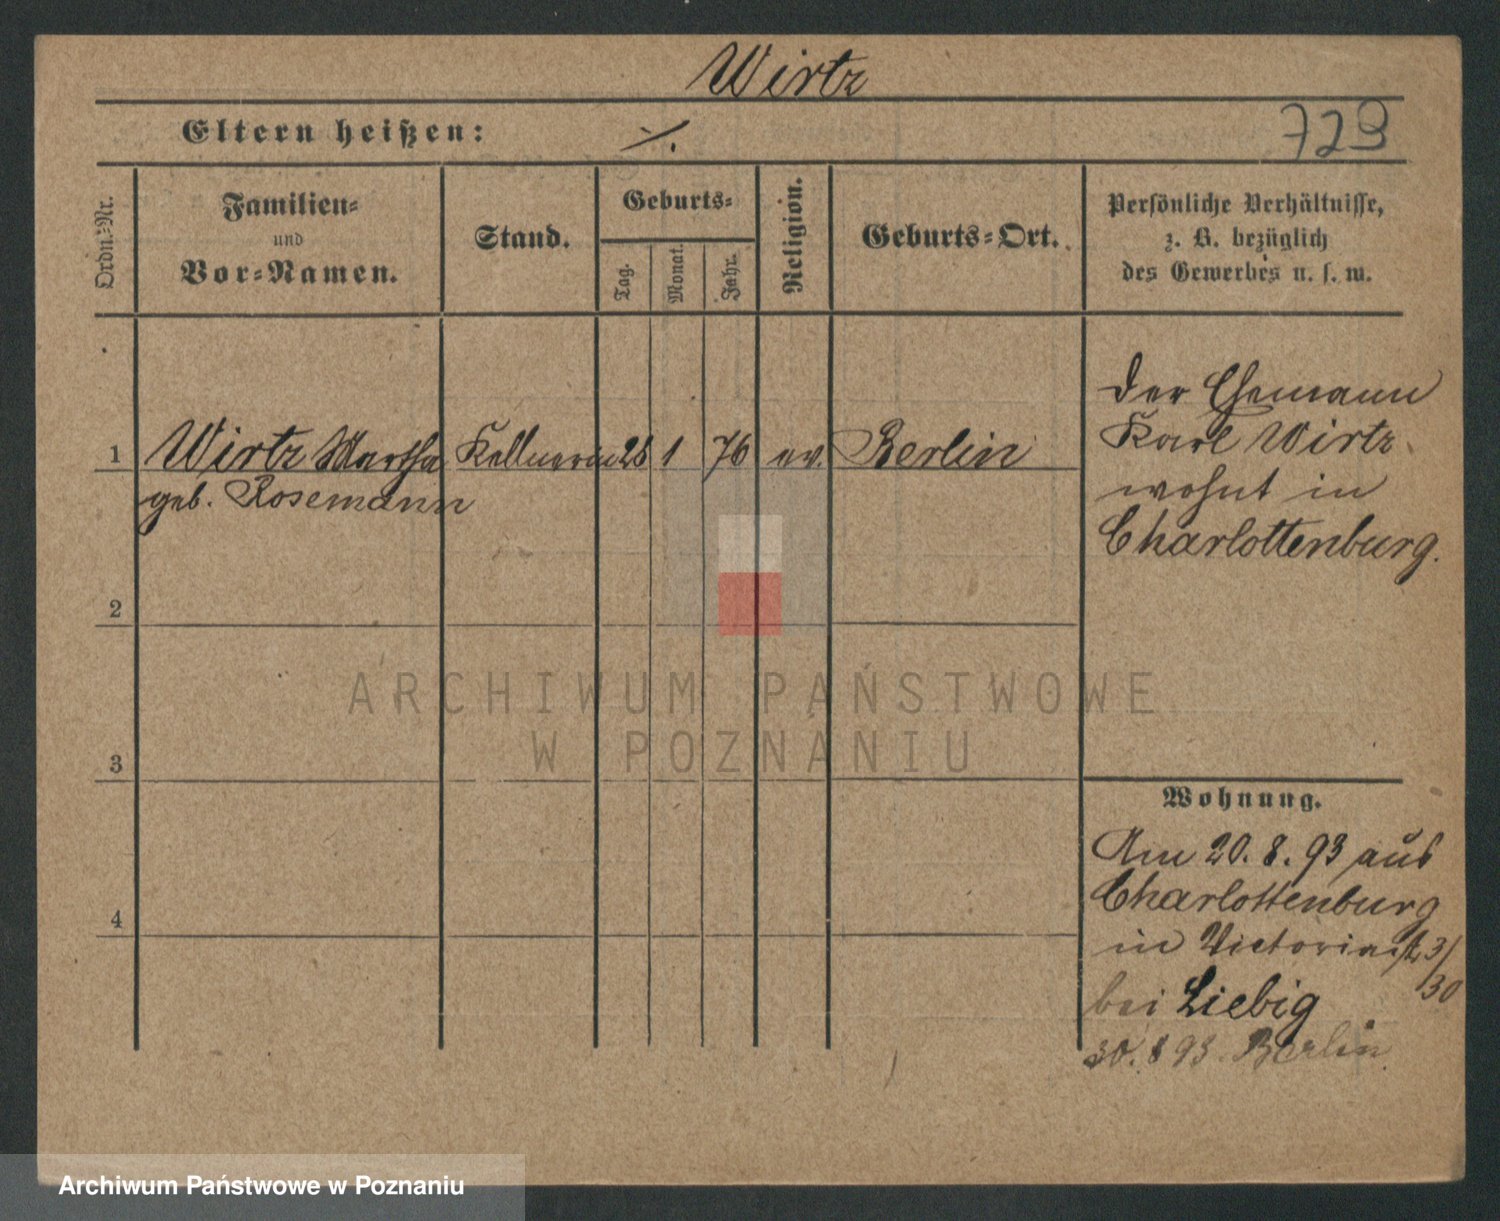 Wirtz
Eltern heißen: ./.
729
Ordn.-Nr.
Familien-
und
Vor-Namen.
Stand.
Geburts-
Tag.
Monat.
Jahr.
Religion.
Geburts-Ort.
Persönliche Verhältnisse,
z. B. bezüglich
des Gewerbes u. s. w.
1 Wirtz Martha Kellnerin 28 1 76 ev. Berlin
geb. Rosemann
Der Ehemann
Karl Wirtz
wohnt in
Charlottenburg.
2
3
4
Wohnung.
Am 20. 8. 93 aus
Charlottenburg
in Victoriastr 3/
30
bei Liebig
30. 8 93. Berlin
ARCHIWUM PAŃSTWOWE
W POZNANIU
Archiwum Państwowe w Poznaniu